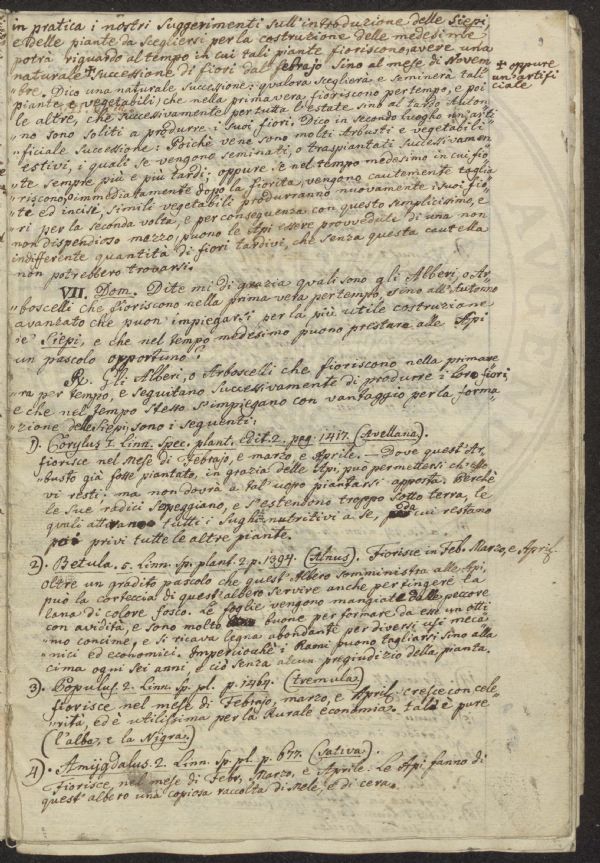 in pratica i nostri suggerimenti sull'introduzione delle siepi,
e delle piante da scegliersi per la costruzione delle medesime
potrà riguardo al tempo in cui tali piante fioriscono, avere una
naturale + successione di fiori dal febrajo sino al mese di Novem
+ oppure
un artifi
ciale
"bre. Dico una naturale successione: qualora sceglierà e seminerà tali
piante, e vegetabili, che nella primavera fioriscono per tempo, e poi
le altre, che successivamente per tutta l'estate sino al tardo Autun
"no sono soliti a produrre i suoi fiori. Dico in secondo luogho un'arti
"ficiale successione: Poichè ve ne sono molti Arbusti e vegetabili
estivi, i quali se vengono seminati, o traspiantati successivamen
"te sempre più e più tardi; oppure se nel tempo medesimo in cui fio
"riscono, o immediatamente dopo la fiorita, vengono cautemente taglia
"te ed incise, simili vegetabili produrranno nuovamente i suoi fio
"ri per la seconda volta, e per conseguenza con questo semplicissimo, e
non dispendioso mezzo, puono le Api essere provvedute di una non
indifferente quantità di fiori tardivi, che senza questa cautella
non potrebbero trovarsi.
VII. Dom. Dite mi di grazia quali sono gli Alberi, o Ar
"boscelli che fioriscono nella prima vera per tempo, e sino all'Autunno
avanzato che puon impiegarsi per la più utile costruzione
"e Siepi, e che nel tempo medesimo puono prestare alle Api
un pascolo opportuno?
R. Gli Alberi, o Arboscelli che fioriscono nella primave
"ra per tempo, e seguitano successivamente di produrre i loro fiori,
e che nel tempo stesso s'impiegano con vantaggio per la forma
"zione delle siepi, sono i seguenti.
1). Corylus 1. Linn. Spec. plant. edit. 2. pag. 1417. (Avellana).
fiorisce nel mese di Febrajo, e marzo, e Aprile. — Dove quest'Ar
"busto già fosse piantato, in grazia delle Api, può permettersi ch'esso
vi resti: ma non dovrà a tal uopo piantarsi apposta. Perchè
le sue radici serpeggiano, e s'estendono troppo sotto terra, le
quali attirano tutti i sughi nutritivi a se, da cui restano
poi privi tutte le altre piante.
2). Betula. 5. Linn. Sp. plant. 2. p. 1394. (Alnus). Fiorisce in Feb. Marzo, e April.
oltre un gradito pascolo che quest'Albero somministra alle Api,
può la corteccia di quest'albero servire anche per tingere la
lana di colore fosco. Le foglie vengono mangiate dalle pecore
con avidità, e sono molto buone per formare da esse un otti
"mo concime, e si ricava legna abondante per diversi usi mecca
"nici ed economici. Imperciochè i Rami puono tagliarsi sino alla
cima ogni sei anni, e ciò senza alcun pregiudizio della pianta.
3). Populus. 2. Linn. Sp. pl. p. 1464. (tremula)
fiorisce nel mese di Febrajo, marzo, e April. cresce con cele
"rità, ed è utilissima per la Rurale economia. tale è pure
(l'alba, e la Nigra.)
4). Amijgdalus. 2. Linn. Sp. pl. p. 677. (Sativa).
Fiorisce, nel mese di Febr, Marzo, e Aprile. Le Api fanno di
quest'albero una copiosa raccolta di Mele, e di cera.